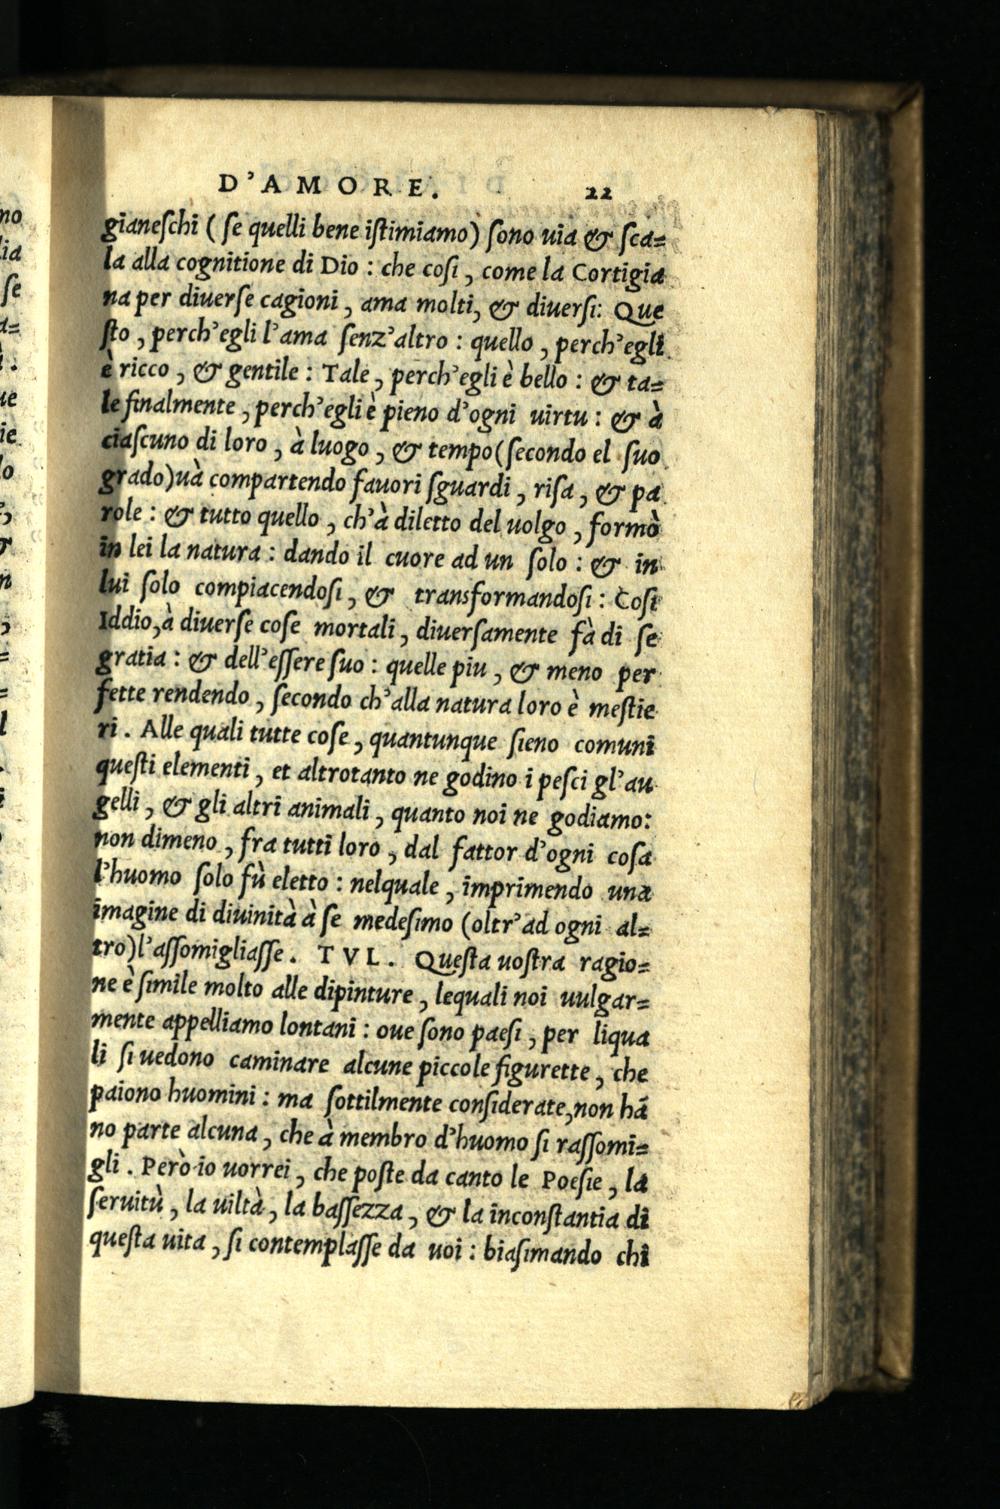 D'AMORE. 22
gianeſchi (ſe quelli bene iſtimiamo) ſono uia & ſca=
la alla cognitione di Dio : che coſi, come la Cortigia
na per diuerſe cagioni, ama molti, & diuerſi: Que
ſto, perch'egli l'ama ſenz'altro : quello, perch'egli
è ricco, & gentile : Tale, perch'egli è bello : & ta=
le finalmente, perch'egli è pieno d'ogni uirtu : & à
ciaſcuno di loro, à luogo, & tempo (ſecondo el ſuo
grado) uà compartendo fauori ſguardi, riſa, & pa
role : & tutto quello, ch'à diletto del uolgo, formò
in lei la natura : dando il cuore ad un ſolo : & in
lui ſolo compiacendoſi, & transformandoſi : Coſi
Iddio, à diuerſe coſe mortali, diuerſamente fà di ſe
gratia : & dell'eſſere ſuo : quelle piu, & meno per
fette rendendo, ſecondo ch'alla natura loro è meſtie
ri. Alle quali tutte coſe, quantunque ſieno comuni
queſti elementi, et altrotanto ne godino i peſci gl'au
gelli, & gli altri animali, quanto noi ne godiamo:
non dimeno, fra tutti loro, dal fattor d'ogni coſa
l'huomo ſolo fù eletto : nelquale, imprimendo una
imagine di diuinità à ſe medeſimo (oltr'ad ogni al=
tro) l'aſſomigliaſſe. TVL. Queſta uoſtra ragio=
ne è ſimile molto alle dipinture, lequali noi uulgar=
mente appelliamo lontani : oue ſono paeſi, per liqua
li ſi uedono caminare alcune piccole figurette, che
paiono huomini : ma ſottilmente conſiderate, non hã
no parte alcuna, che à membro d'huomo ſi raſſomi=
gli. Però io uorrei, che poſte da canto le Poeſie, la
ſeruitù, la uiltà, la baſſezza, & la inconſtantia di
queſta uita, ſi contemplaſſe da uoi : biaſimando chi